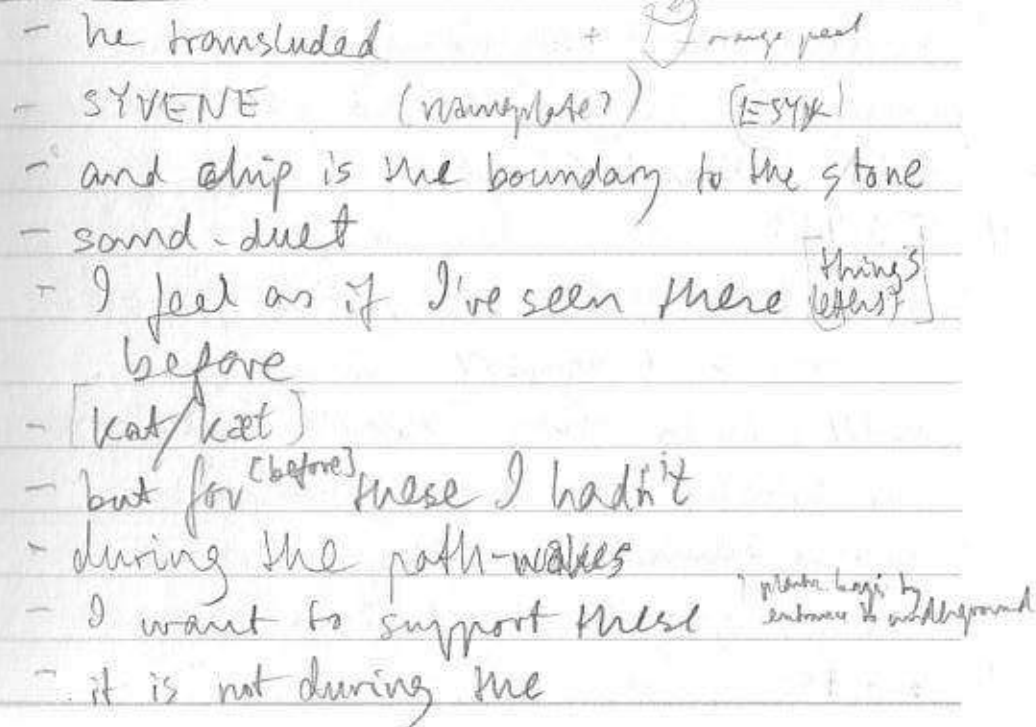 - he transluded + orange peel
- SYVENE (nameplate?) (ESYX)
- and chip is the boundary to the stone
- sand-duet
- I feel as if I've seen these [things letters?]
before
- [kat/kæt]
- but for [before] these I hadn't
- during the path-wakes
- I want to support these plastic bags by
entrance to underground
- it is not during the